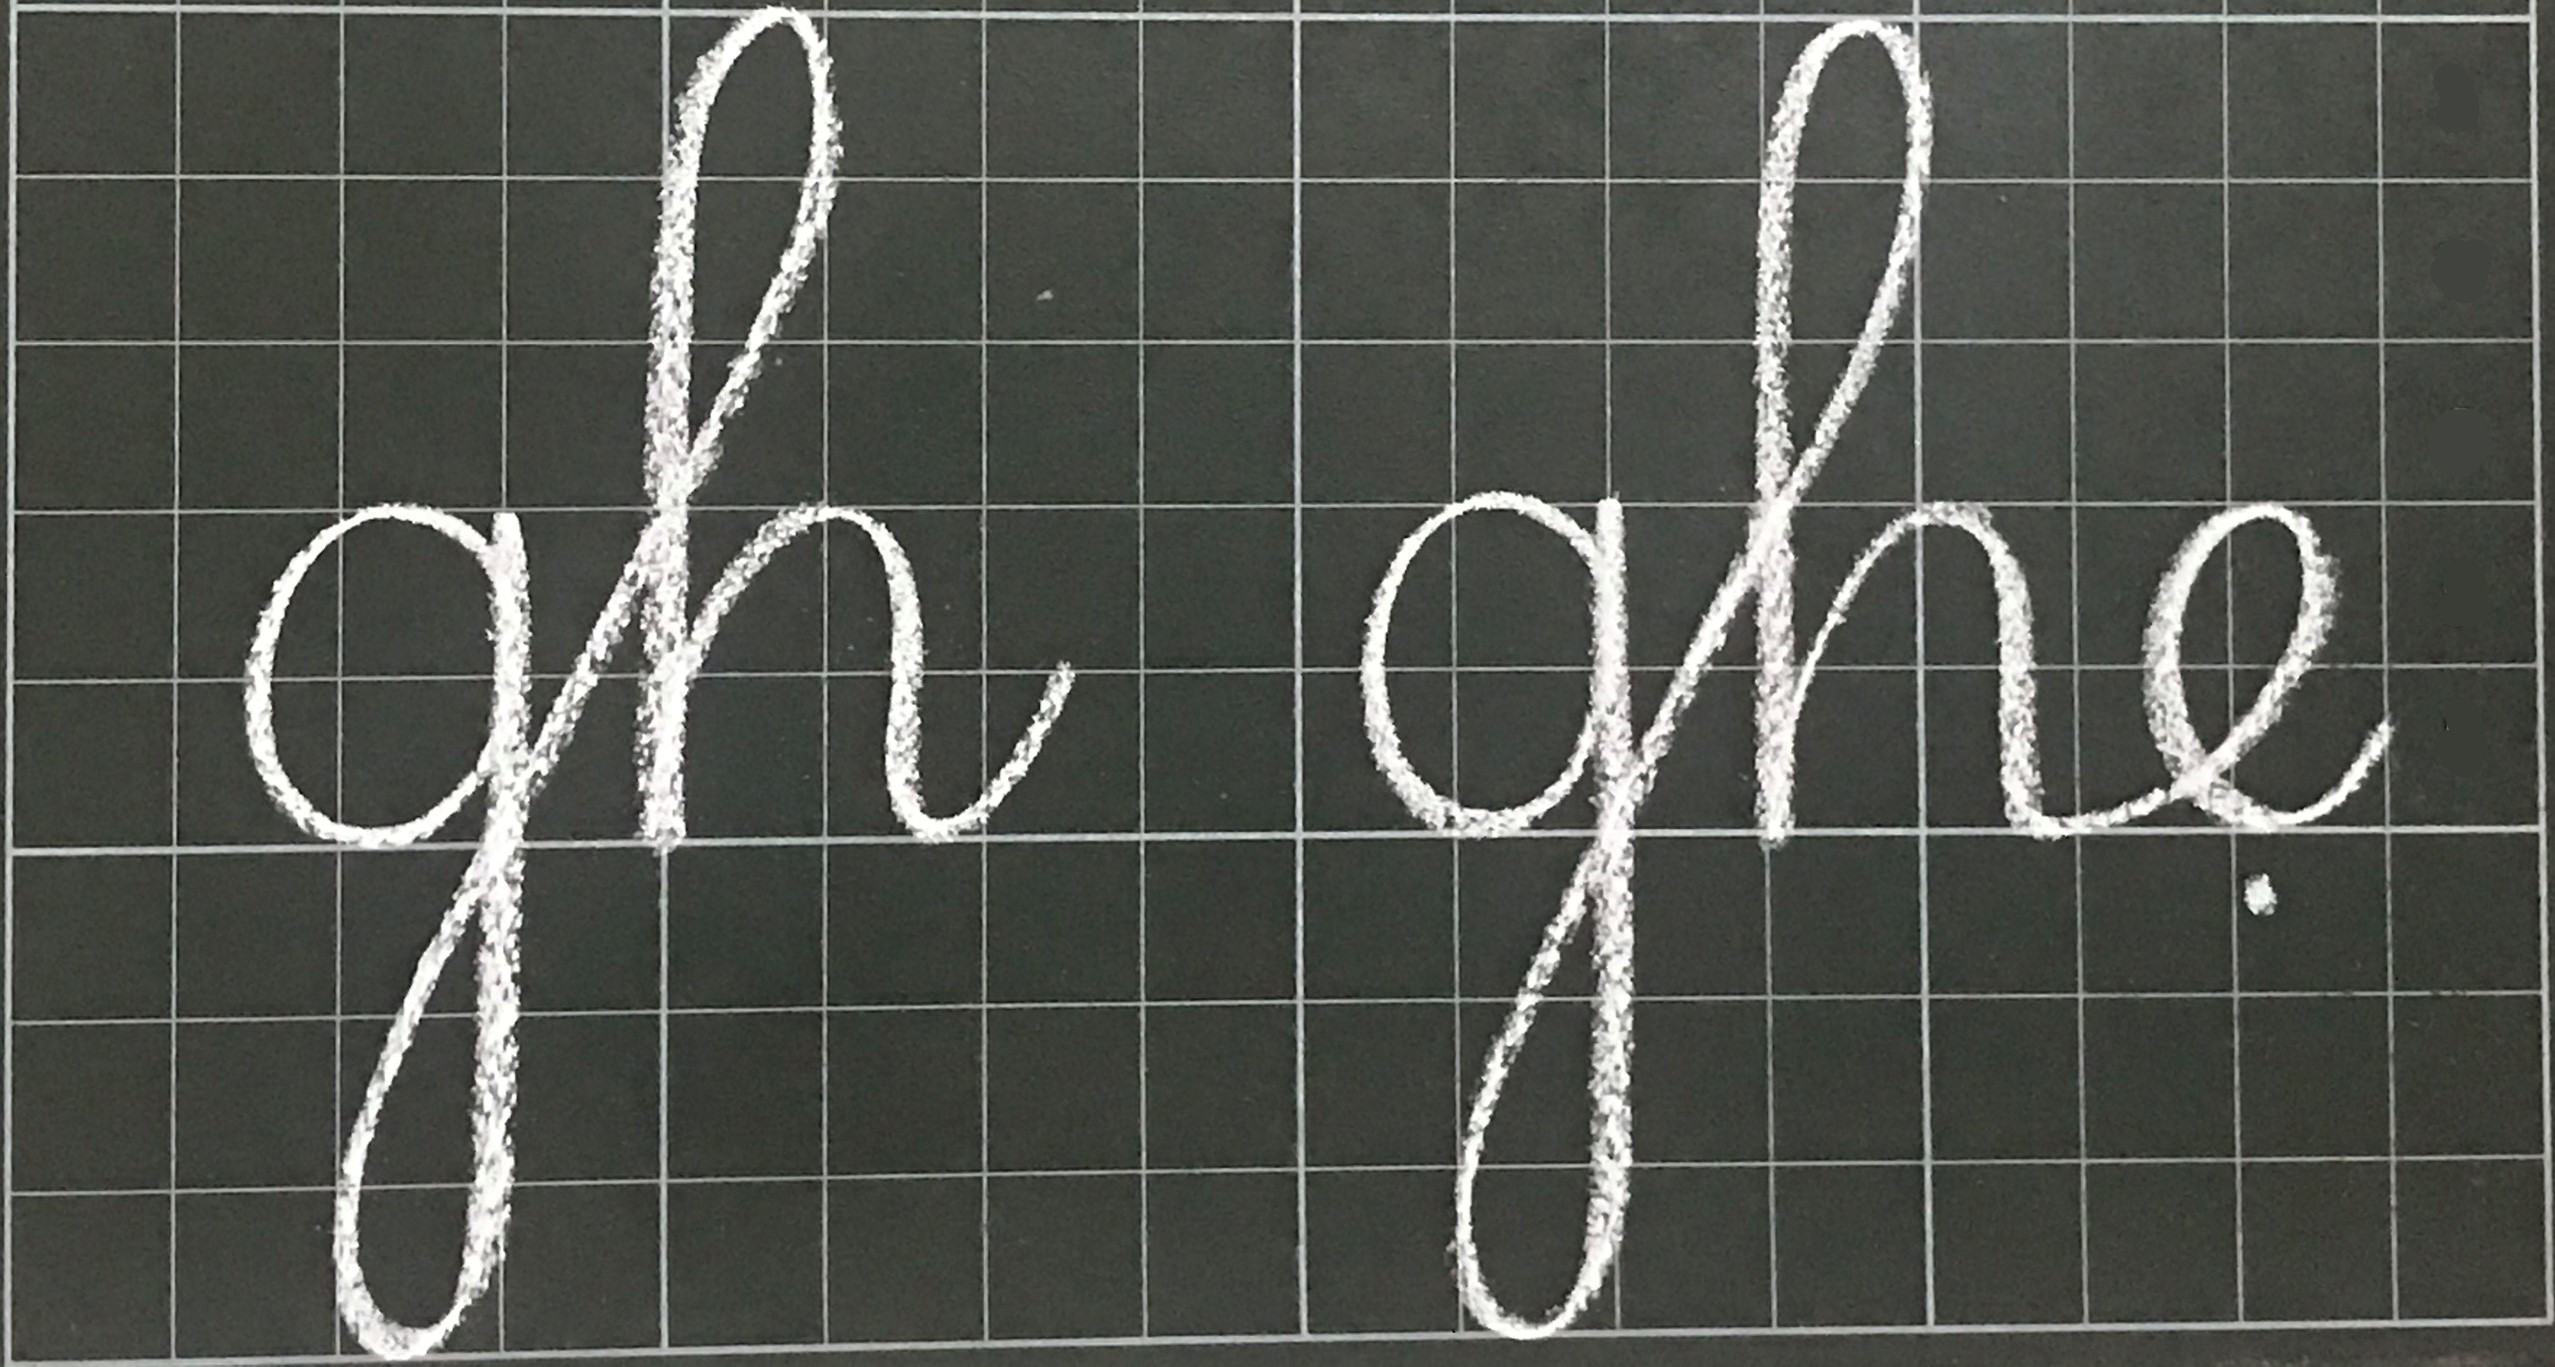 gh ghẹ